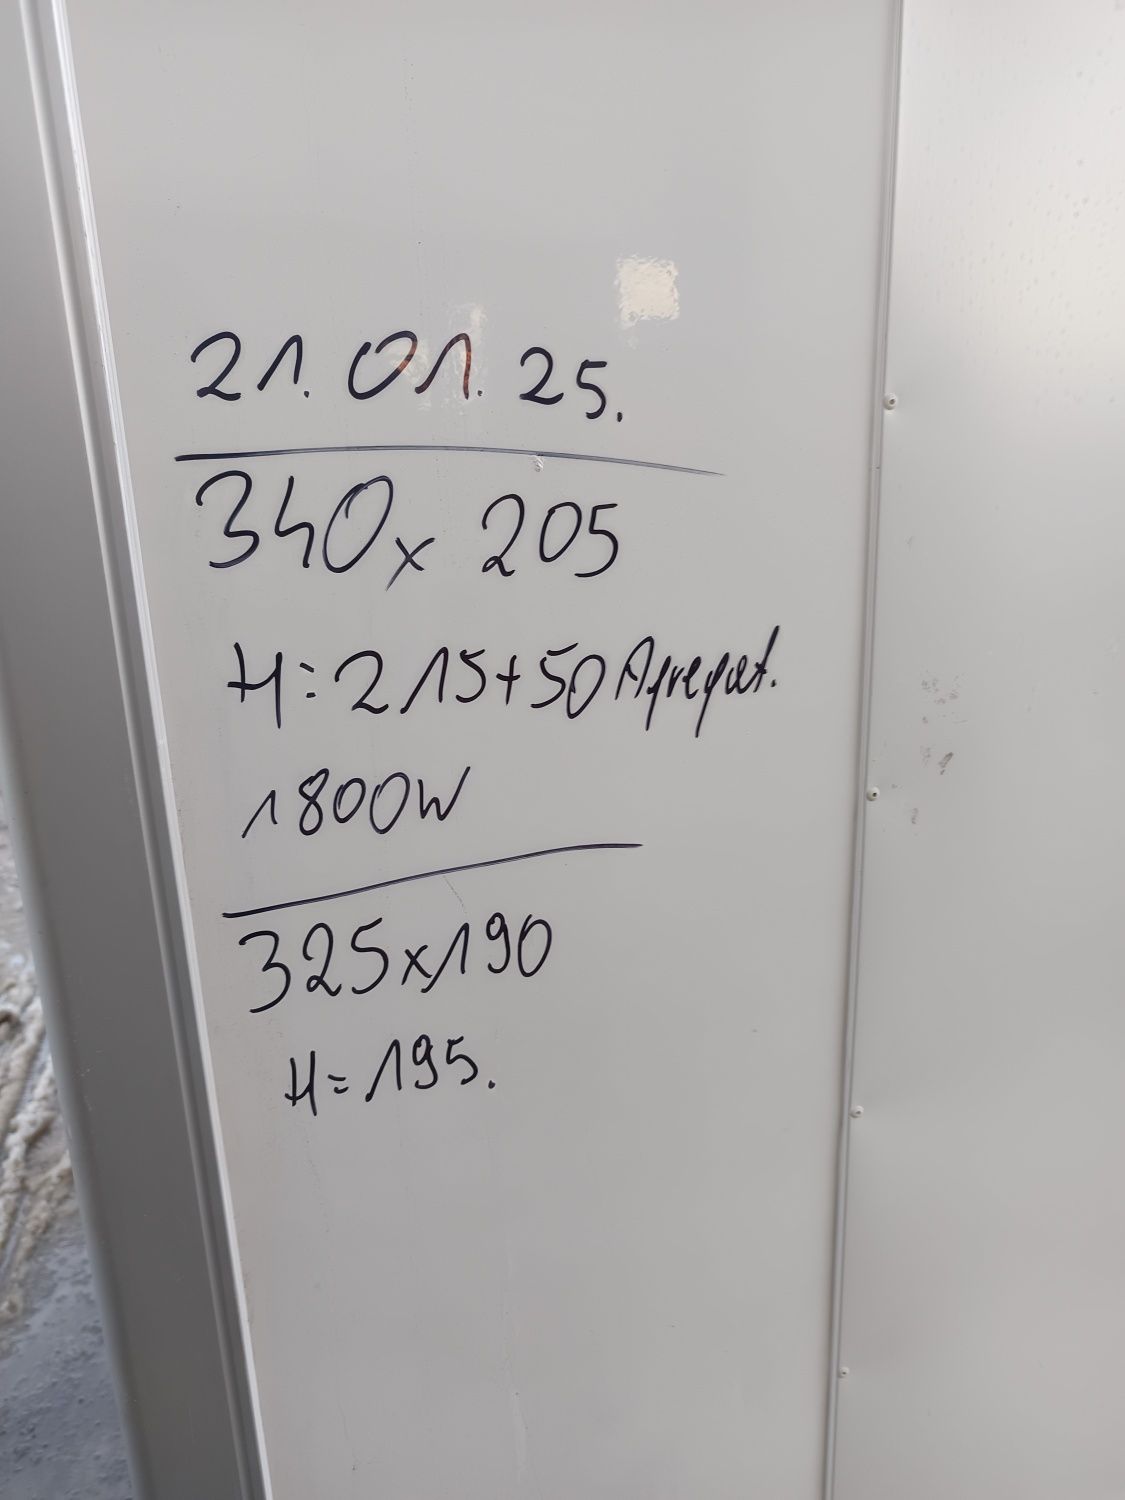 21.01.25.
340x205
H:215+50 Agregat.
1800W
325x190
H=195.